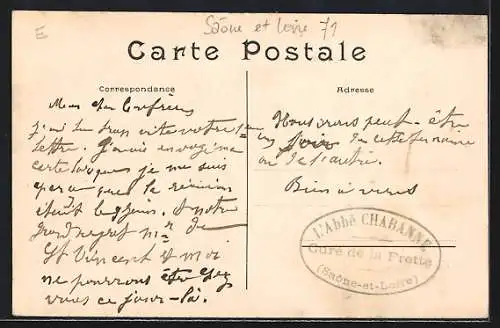 E
Saône et Loire 71
Carte Postale
Correspondance
Mon cher Confrère
J'ai lu trop vite votre
lettre. J'avais envoyé ma
carte lorsque je me suis
que la réunion
était le 9 juin. A notre
grand regret Mr de
St Vincent et moi
ne pourrons être chez
vous ce jour-là.
Adresse
Nous irons peut-être
un soir de cette semaine
ou de l'autre.
Bien à vous
L'Abbé CHABANNE
Curé de la Frette
(Saône-et-Loire)